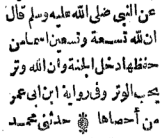 عن النبي صلى الله عليه وسلم قال
ان لله تسعة وتسعين اسما من
حفظها دخل الجنة وان الله وتر
يحب الوتر وفي رواية ابن ابي عمر
من أحصاها حدثني محمد